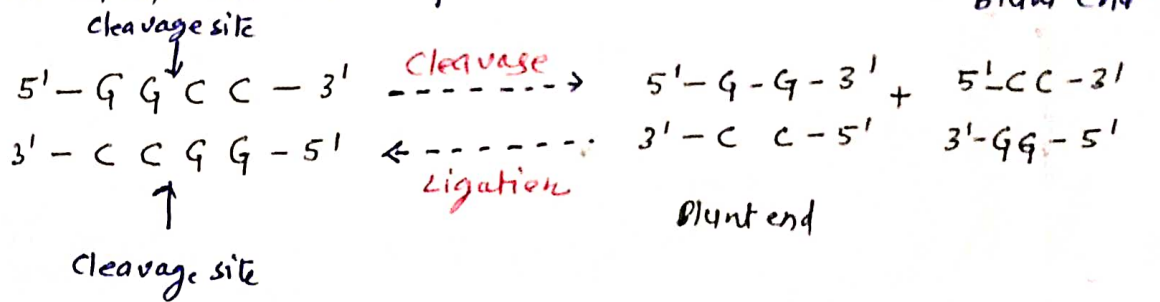 Cleavage site
5'- G G C C - 3' Cleavage 5'- G - G - 3' + 5'-CC-3'
3' - C C G G - 5' Ligation 3' - C C - 5' 3'-GG-5'
Blunt end
Cleavage site